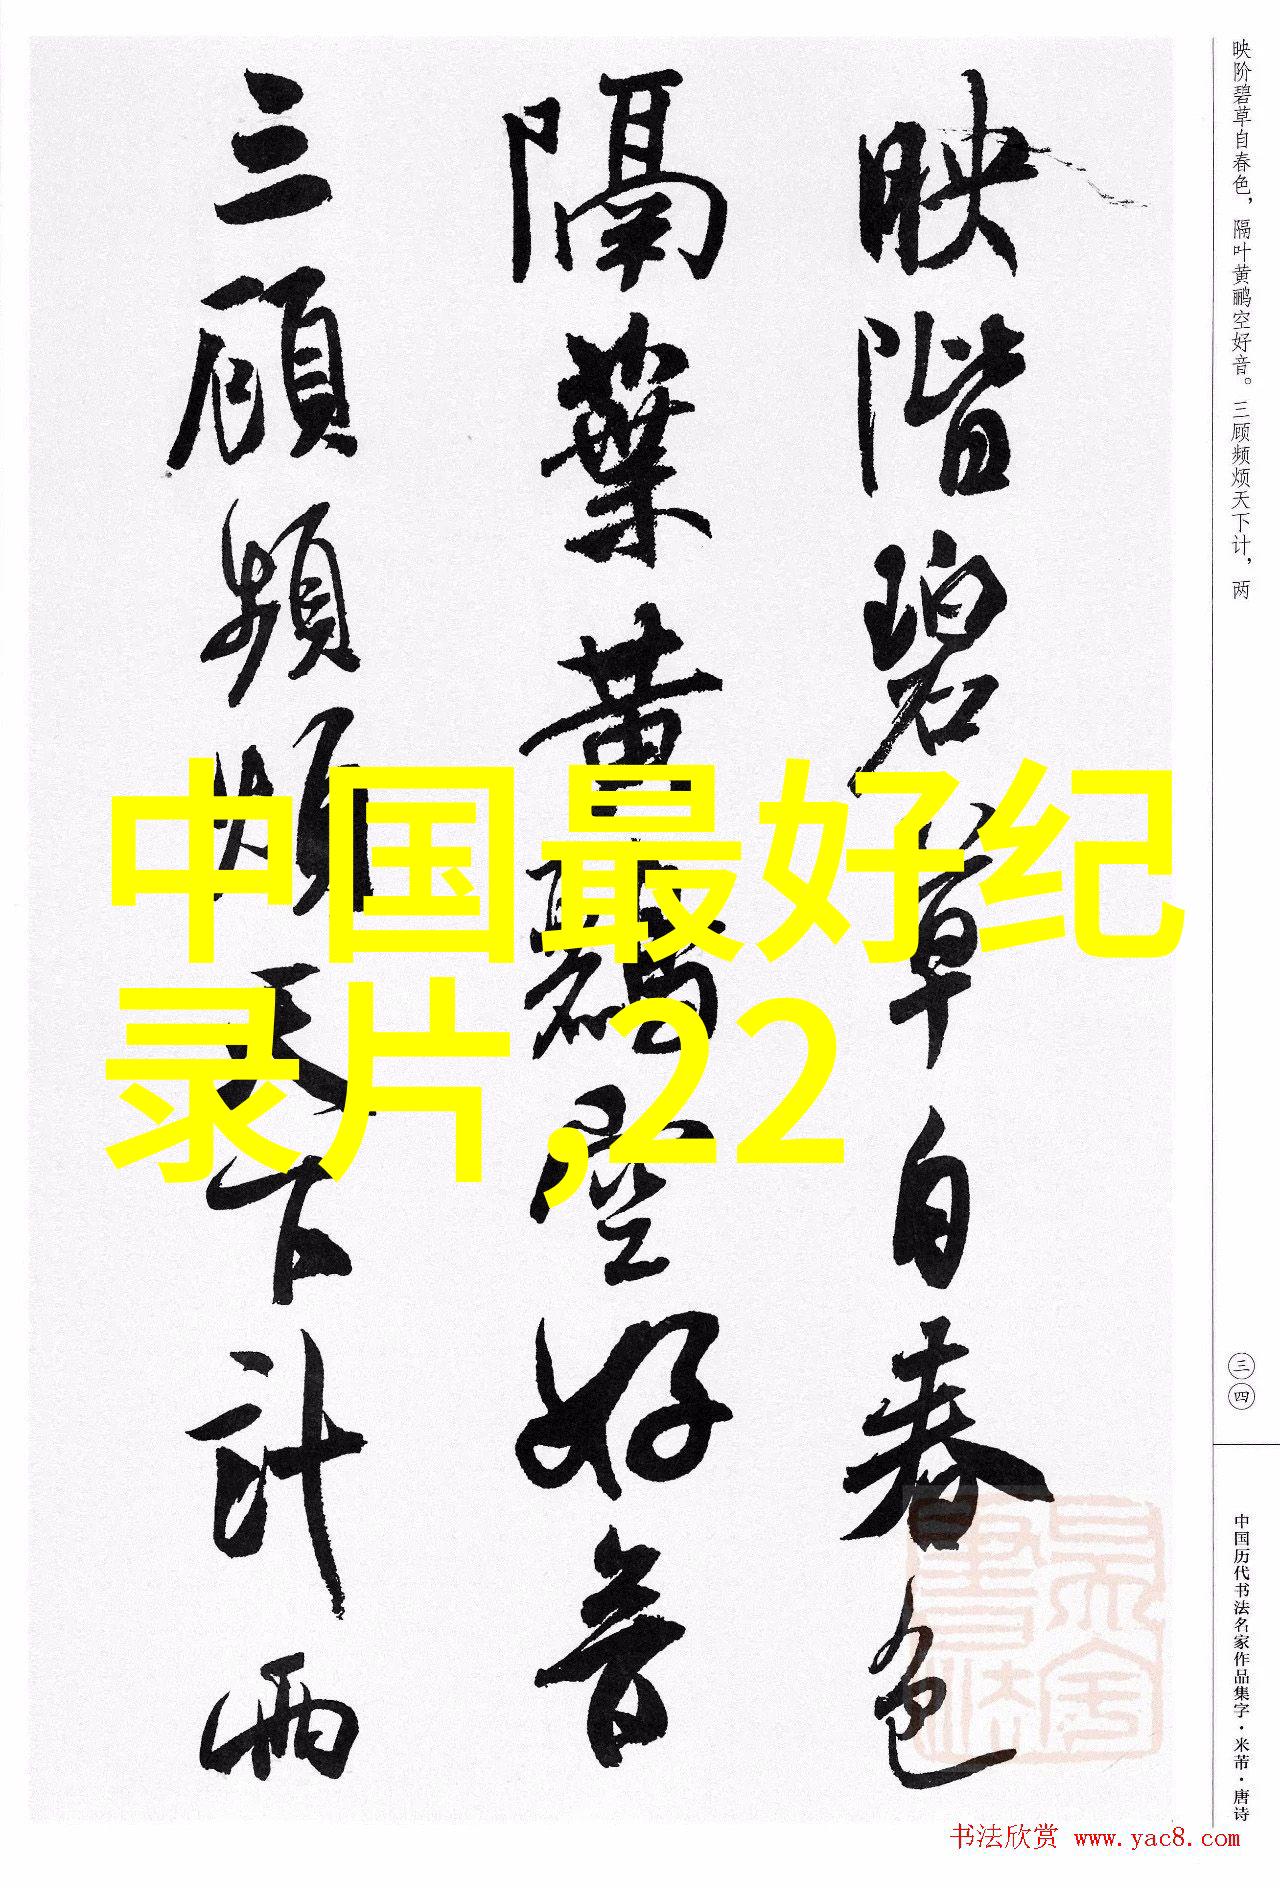 映階碧草自春色
隔葉黃鸝空好音
三顧頻煩天下計兩
中国最好纪
录片,22
映阶碧草自春色，隔叶黄鹂空好音。三顾频烦天下计，两
三四
中国历代书法名家作品集字·米芾·唐诗
书法欣赏 www.yac8.com